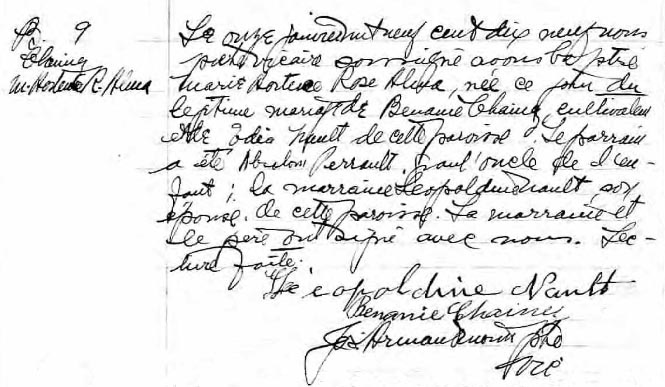 B. 9
Chainey
M. Hortense R. Alma
Le onze janvier mil neuf cent dix neuf nous
prêtre vicaire soussigné avons baptisé
Marie Hortense Rose Alma, née ce jour du
légitime mariage de Benanie Chainey, cultivateur
et de Odia Nault de cette paroisse. Le parrain
a été Absolom Perrault, grand'oncle de l'en-
fant; la marraine Léopoldine Nault, son
épouse, de cette paroisse. La marraine et
le père ont signé avec nous. Lec-
ture faite.
Léopoldine Nault
Benanie Chainey
Jos. Armand ptre
vic